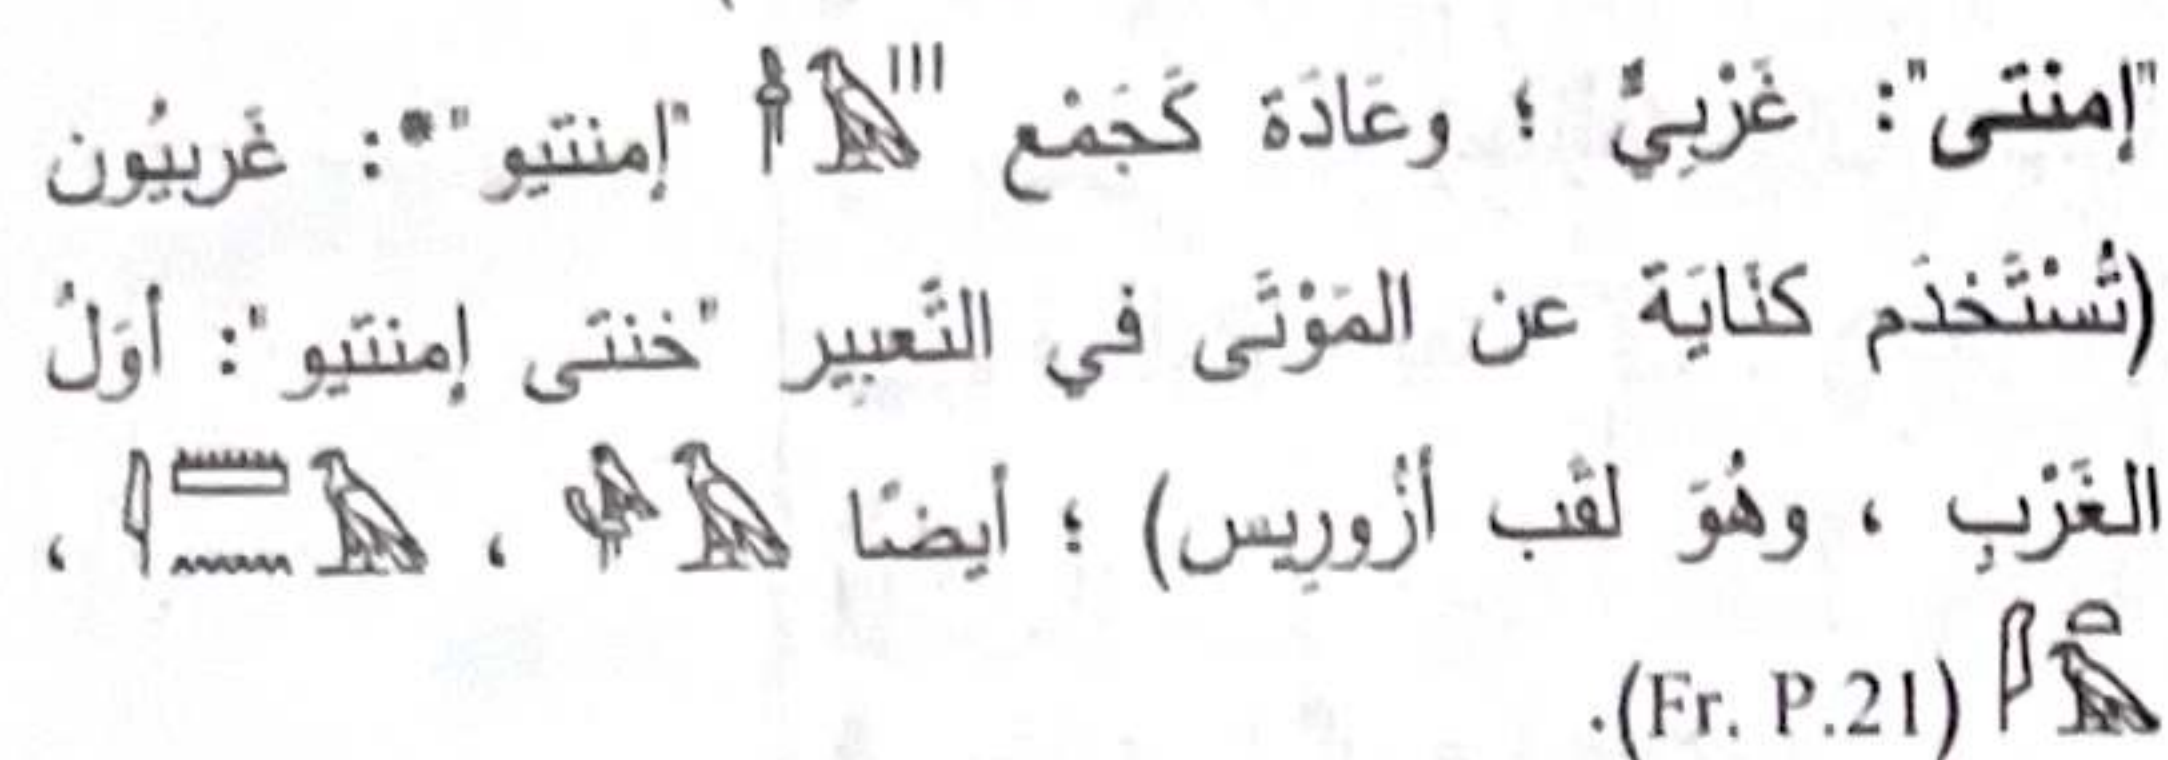 "إمنتى": غَرْبِيٌّ ؛ وعَادَة كَجَمْع "إمنتيو"*: غَربيُون
(تُسْتَخدَم كنَايَة عن المَوْتَى في التَّعبير "خنتى إمنتيو": أوَلُ
الغَرْبِ ، وهُوَ لقَب أزُورِيس) ؛ أيضًا ، ،
(Fr. P.21).